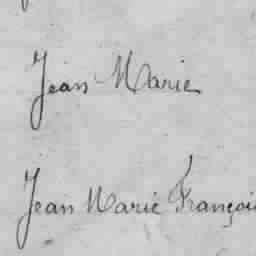 Jean-Marie
Jean Marie François